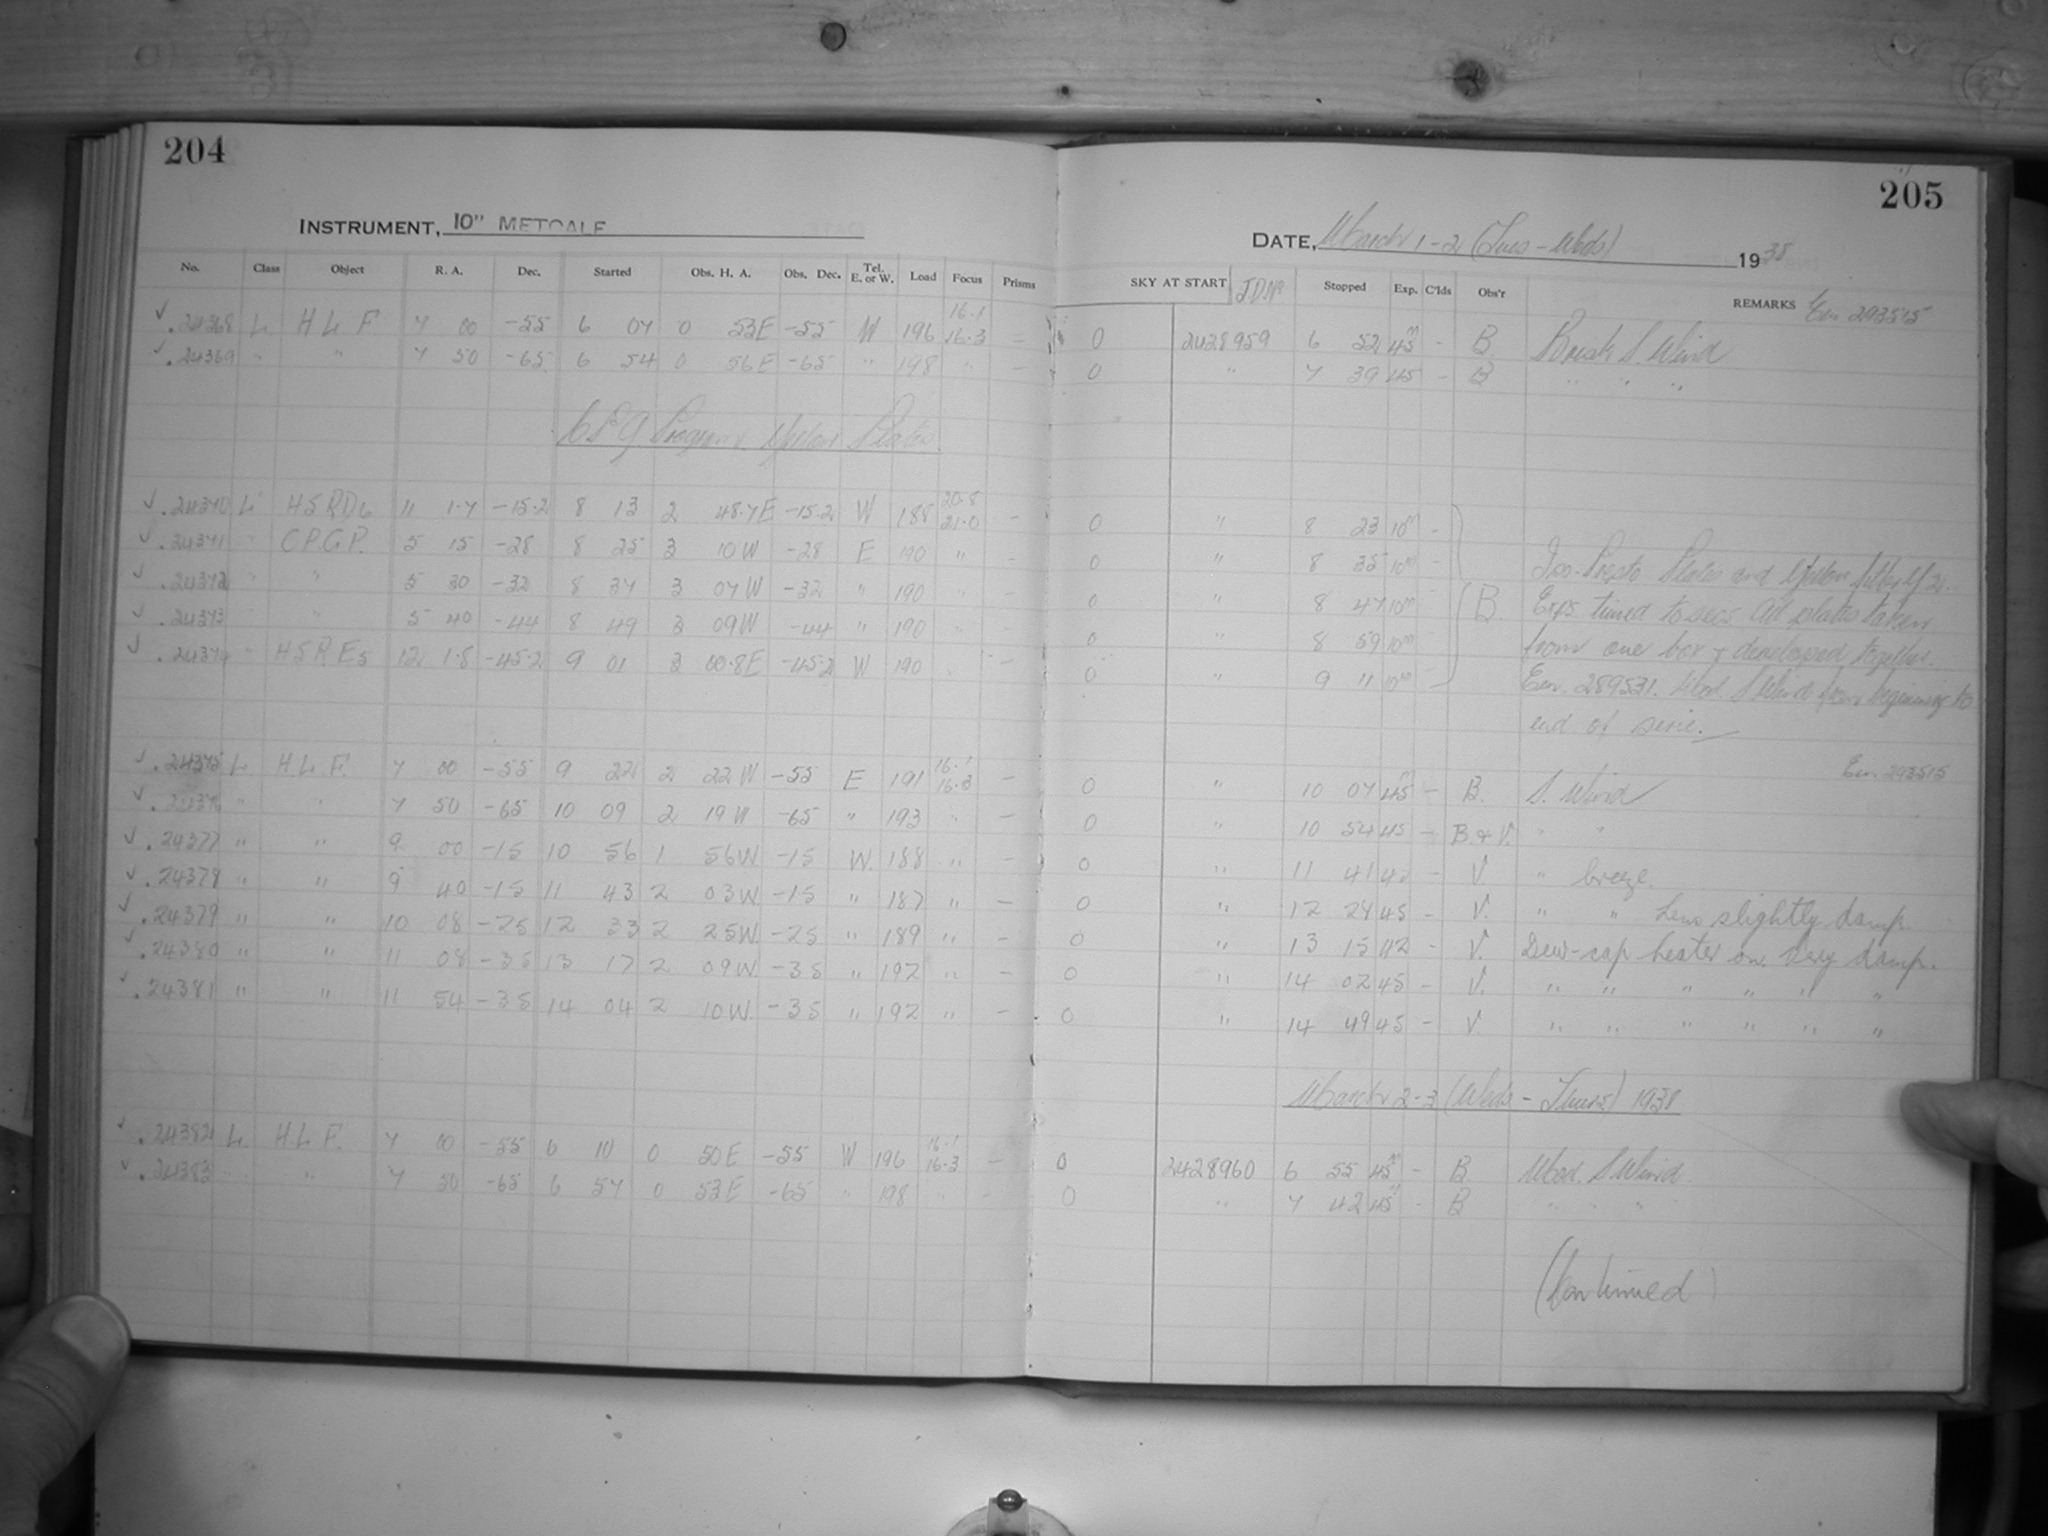 204
INSTRUMENT, 10" METCALF
No. Class Object R. A. Dec. Started Obs. H. A. Obs. Dec. Tel. E. or W. Load Focus Prisms
✓ .24368 L H L F 7 00 -55 6 07 0 53E -55 W 196 16.1 16.3 —
✓ .24369 " " 7 50 -65 6 54 0 56E -65 " 198 " —
✓ .24370 L HSRD6 11 1.7 -15.2 8 13 2 48.7E -15.2 W 188 20.8 21.0 —
✓ .24371 " C.P.G.P. 5 15 -28 8 25 3 10W -28 E 190 " —
✓ .24372 " " 5 30 -32 8 37 3 07W -32 " 190 " —
✓ .24373 " " 5 40 -44 8 49 3 09W -44 " 190 " —
✓ .24374 " HSRE5 12 1.8 -45.2 9 01 3 00.8E -45.2 W 190 " —
✓ .24375 L H L F. 7 00 -55 9 22 2 22W -55 E 191 16.1 16.3 —
✓ .24376 " " 7 50 -65 10 09 2 19W -65 " 193 " —
✓ .24377 " " 9 00 -15 10 56 1 56W. -15 W. 188 " —
✓ .24378 " " 9 40 -15 11 43 2 03W. -15 " 187 " —
✓ .24379 " " 10 08 -25 12 33 2 25W. -25 " 189 " —
✓ .24380 " " 11 08 -35 13 17 2 09W. -35 " 192 " —
✓ .24381 " " 11 54 -35 14 04 2 10W. -35 " 192 " —
✓ .24382 L H L F. 7 00 -55 6 10 0 50E -55 W 196 16.1 16.3 —
✓ .24383 " " 7 50 -65 6 57 0 53E -65 " 198 " —
205
DATE, March 1-2 (Tues - Weds) 1938
SKY AT START J.D. No Stopped Exp. C'lds Obs'r REMARKS Em 293515
0 2428959 6 52 45m - B. Brisk S. Wind
0 " 7 39 45 - B " " "
0 " 8 23 10m -
0 " 8 35 10m - Iso-Presto Plates and
0 " 8 47 10m B. Exps timed to secs. All plates taken
0 " 8 59 10m from one box & developed together.
0 " 9 11 10m Em. 289531. Mod. S Wind from beginning to
end of serie.
Em. 293515
0 " 10 07 45m - B. S. Wind
0 " 10 54 45 - B & V. " "
0 " 11 41 45 - V " breeze.
0 " 12 28 45 - V. " " Lens slightly damp.
0 " 13 15 42 - V. Dew-cap heater on. Very damp.
0 " 14 02 45 - V. " " " " " "
0 " 14 49 45 - V. " " " " " "
March 2-3 (Weds - Thurs) 1938
0 2428960 6 55 45m - B. Mod. S Wind
0 " 7 42 45m - B " " "
(Continued)